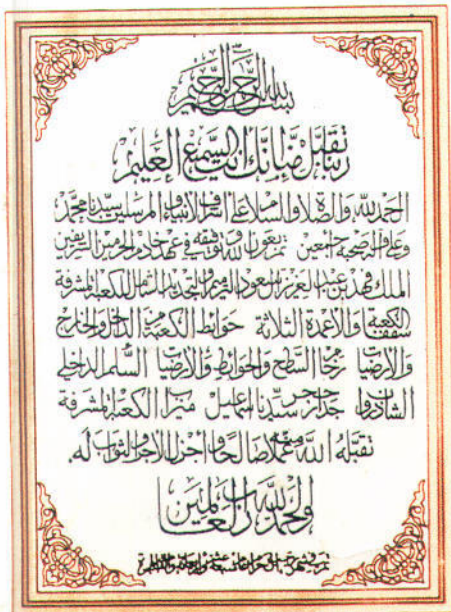 بسم الله الرحمن الرحيم
ربنا تقبل منا إنك أنت السميع العليم
الحمد لله والصلاة والسلام على أشرف الأنبياء والمرسلين سيدنا محمد
وعلى آله وصحبه أجمعين تم بعون الله وتوفيقه في عهد خادم الحرمين الشريفين
الملك فهد بن عبد العزيز آل سعود الترميم والتجديد الشامل للكعبة المشرفة
سقف الكعبة والأعمدة الثلاثة حوائط الكعبة من الداخل والخارج
والأرضيات رخام السطح والحوائط والأرضيات السلم الداخلي
الشاذروان جدار حجر سيدنا إسماعيل ميزاب الكعبة المشرفة
تقبله الله منه عملا صالحا وأجزل الأجر والثواب له
والحمد لله رب العالمين